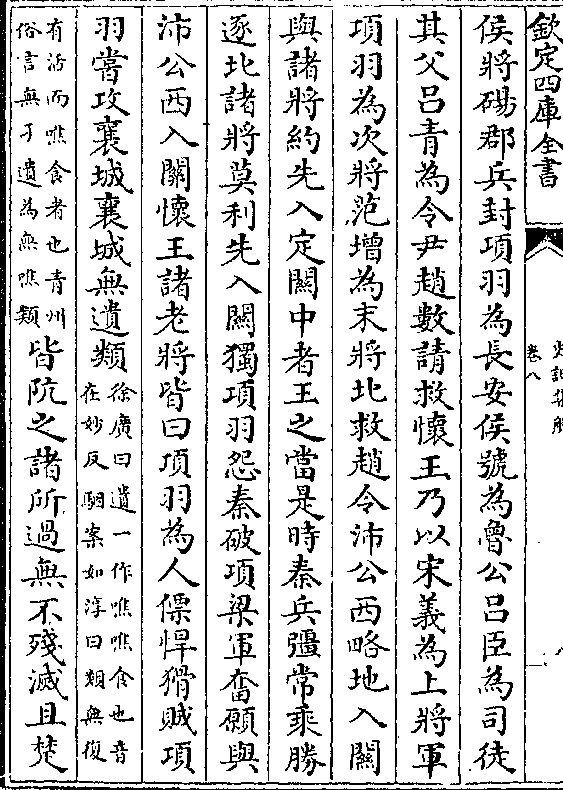 欽定四庫全書
史記集解
卷八
八
侯將碭郡兵封項羽為長安侯號為魯公呂臣為司徒
其父呂青為令尹趙數請救懷王乃以宋義為上將軍
項羽為次將范增為末將北救趙令沛公西略地入關
與諸將約先入定關中者王之當是時秦兵彊常乘勝
逐北諸將莫利先入關獨項羽怨秦破項梁軍奮願與
沛公西入關懷王諸老將皆曰項羽為人僄悍猾賊項
羽嘗攻襄城襄城無遺類徐廣曰遺一作噍噍食也音在妙反駰案如淳曰類無復
有活而噍食者也青州俗言無孑遺為無噍類皆阬之諸所過無不殘滅且楚